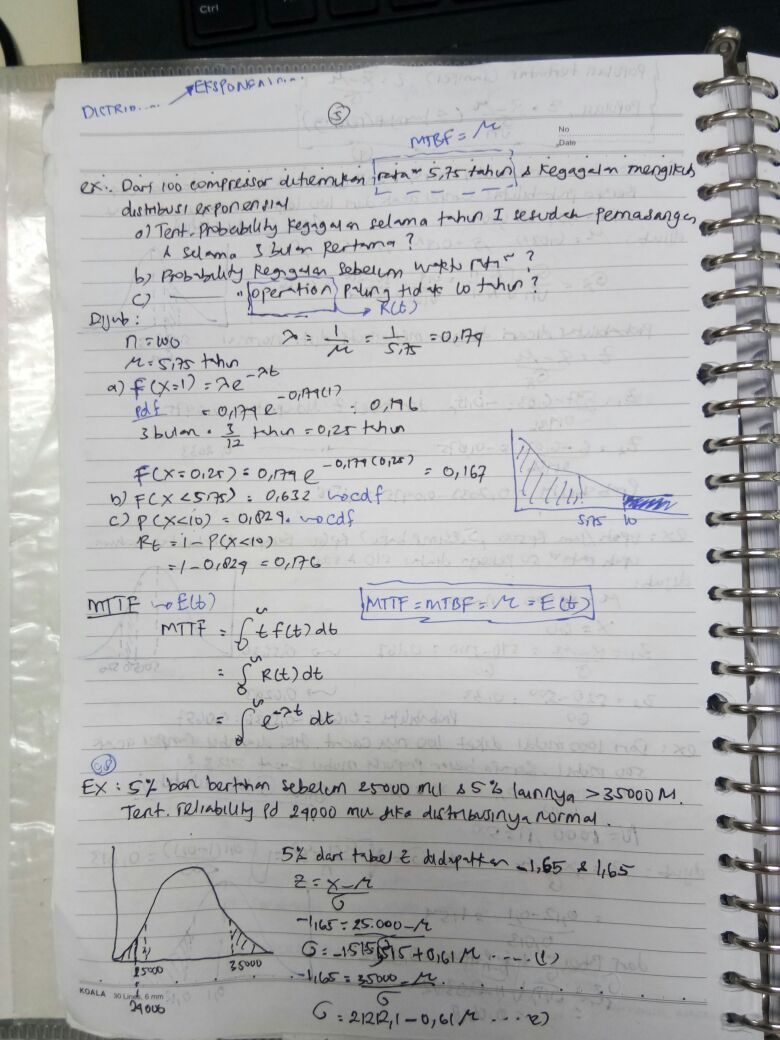 Ctrl
DISTRIB.... EKSPONENSIAL...
5
No
Date
MTBF = μ
ex: Dari 100 compressor ditemukan rata² 5,75 tahun & kegagalan mengikuti
distribusi exponensial
a) Tent. Probability kegagalan selama tahun I sesudah pemasangan
& selama 3 bulan pertama?
b) Probability kegagalan sebelum waktu rata²?
c) ——— " operation paling tidak 10 tahun?
R(t)
Dijwb:
n = 100
λ = 1/μ = 1/5,75 = 0,174
μ = 5,75 tahun
a) f(x=1) = λe^-λt
pdf = 0,174 e^-0,174(1) = 0,146
3 bulan = 3/12 tahun = 0,25 tahun
f(x=0,25) = 0,174 e^-0,174(0,25) = 0,167
b) F(x<5,75) = 0,632 → cdf
c) P(x<10) = 0,824. → cdf
5,75 10
Rt = 1-P(x<10)
= 1-0,824 = 0,176
MTTF → E(t)
MTTF = MTBF = μ = E(t)
MTTF = ∫₀^∞ t f(t) dt
= ∫₀^∞ R(t) dt
= ∫₀^∞ e^-λt dt
EX: 5% ban bertahan sebelum 25000 mil & 5% lainnya >35000 M.
Tent. reliability pd 24000 mil jika distribusinya normal.
5% dari tabel Z didapatkan -1,65 & 1,65
Z = x-μ/σ
-1,65 = 25.000-μ/σ
σ = -15151,515 + 0,61 μ ..... (1)
25000 35000
-1,65 = 35000-μ/σ
24000
σ = 21212,1 - 0,61 μ ... 2)
KOALA 30 Lines, 6 mm